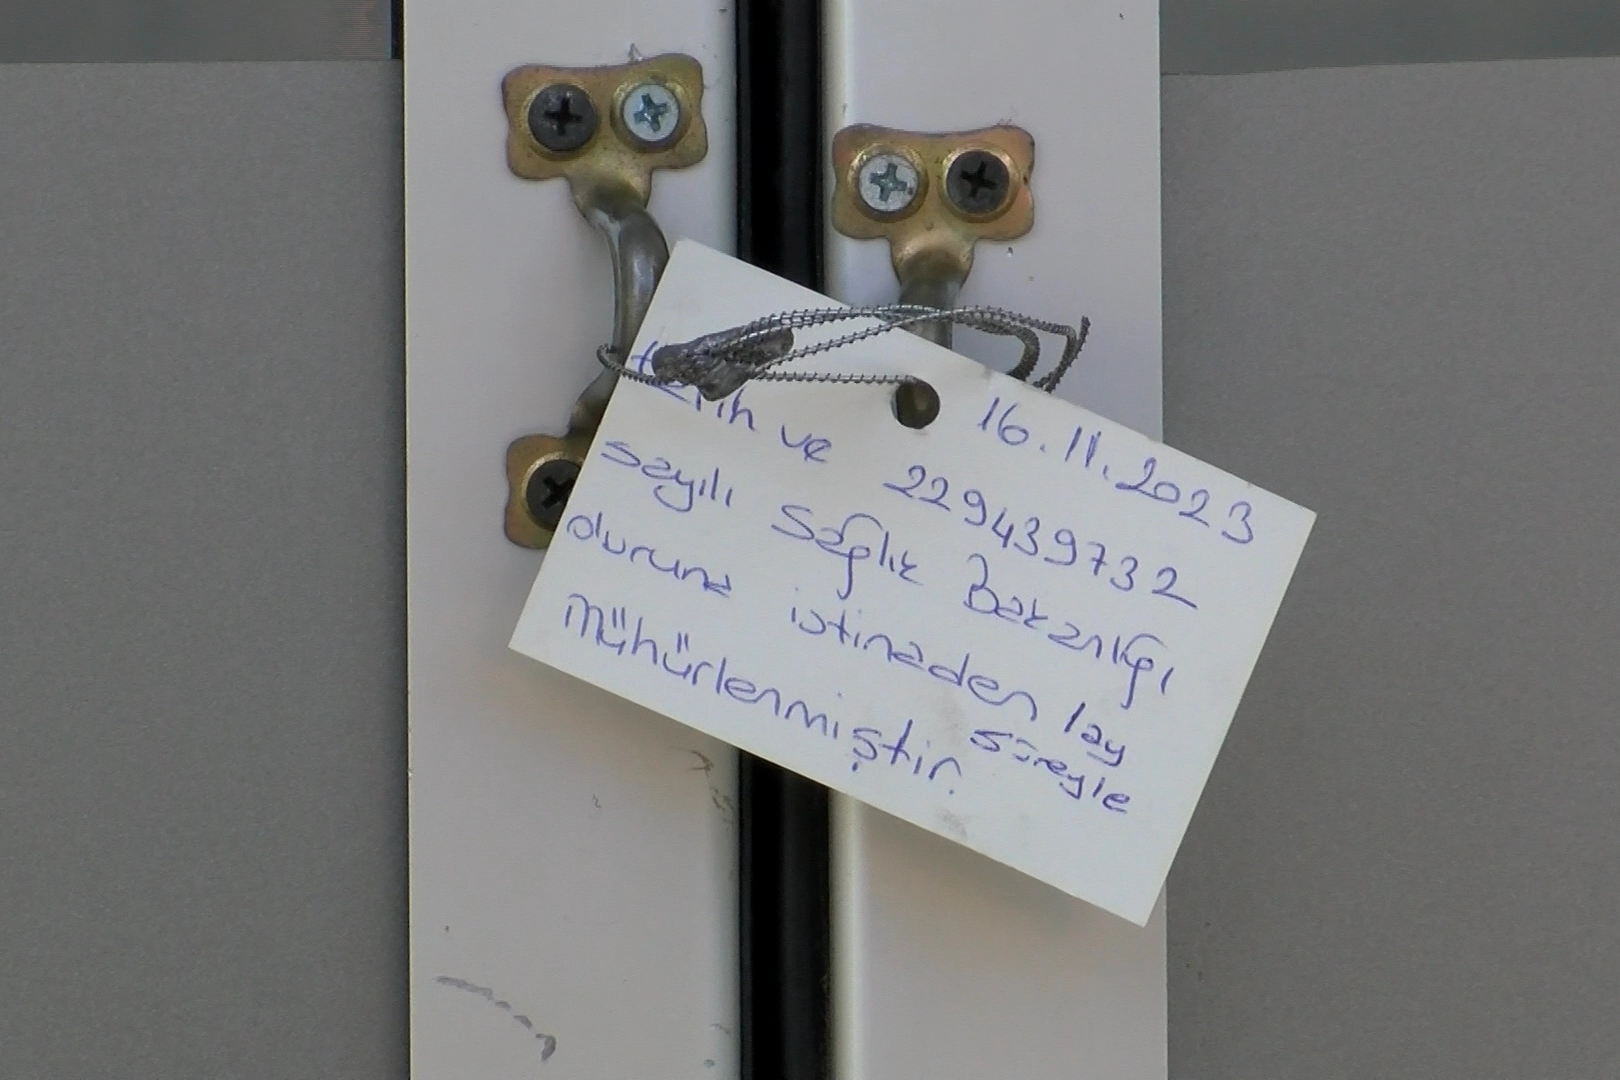 16.11.2023
tarih ve 229439732
sayılı Sağlık Bakanlığı
oluruna istinaden 1 ay
süreyle
Mühürlenmiştir.